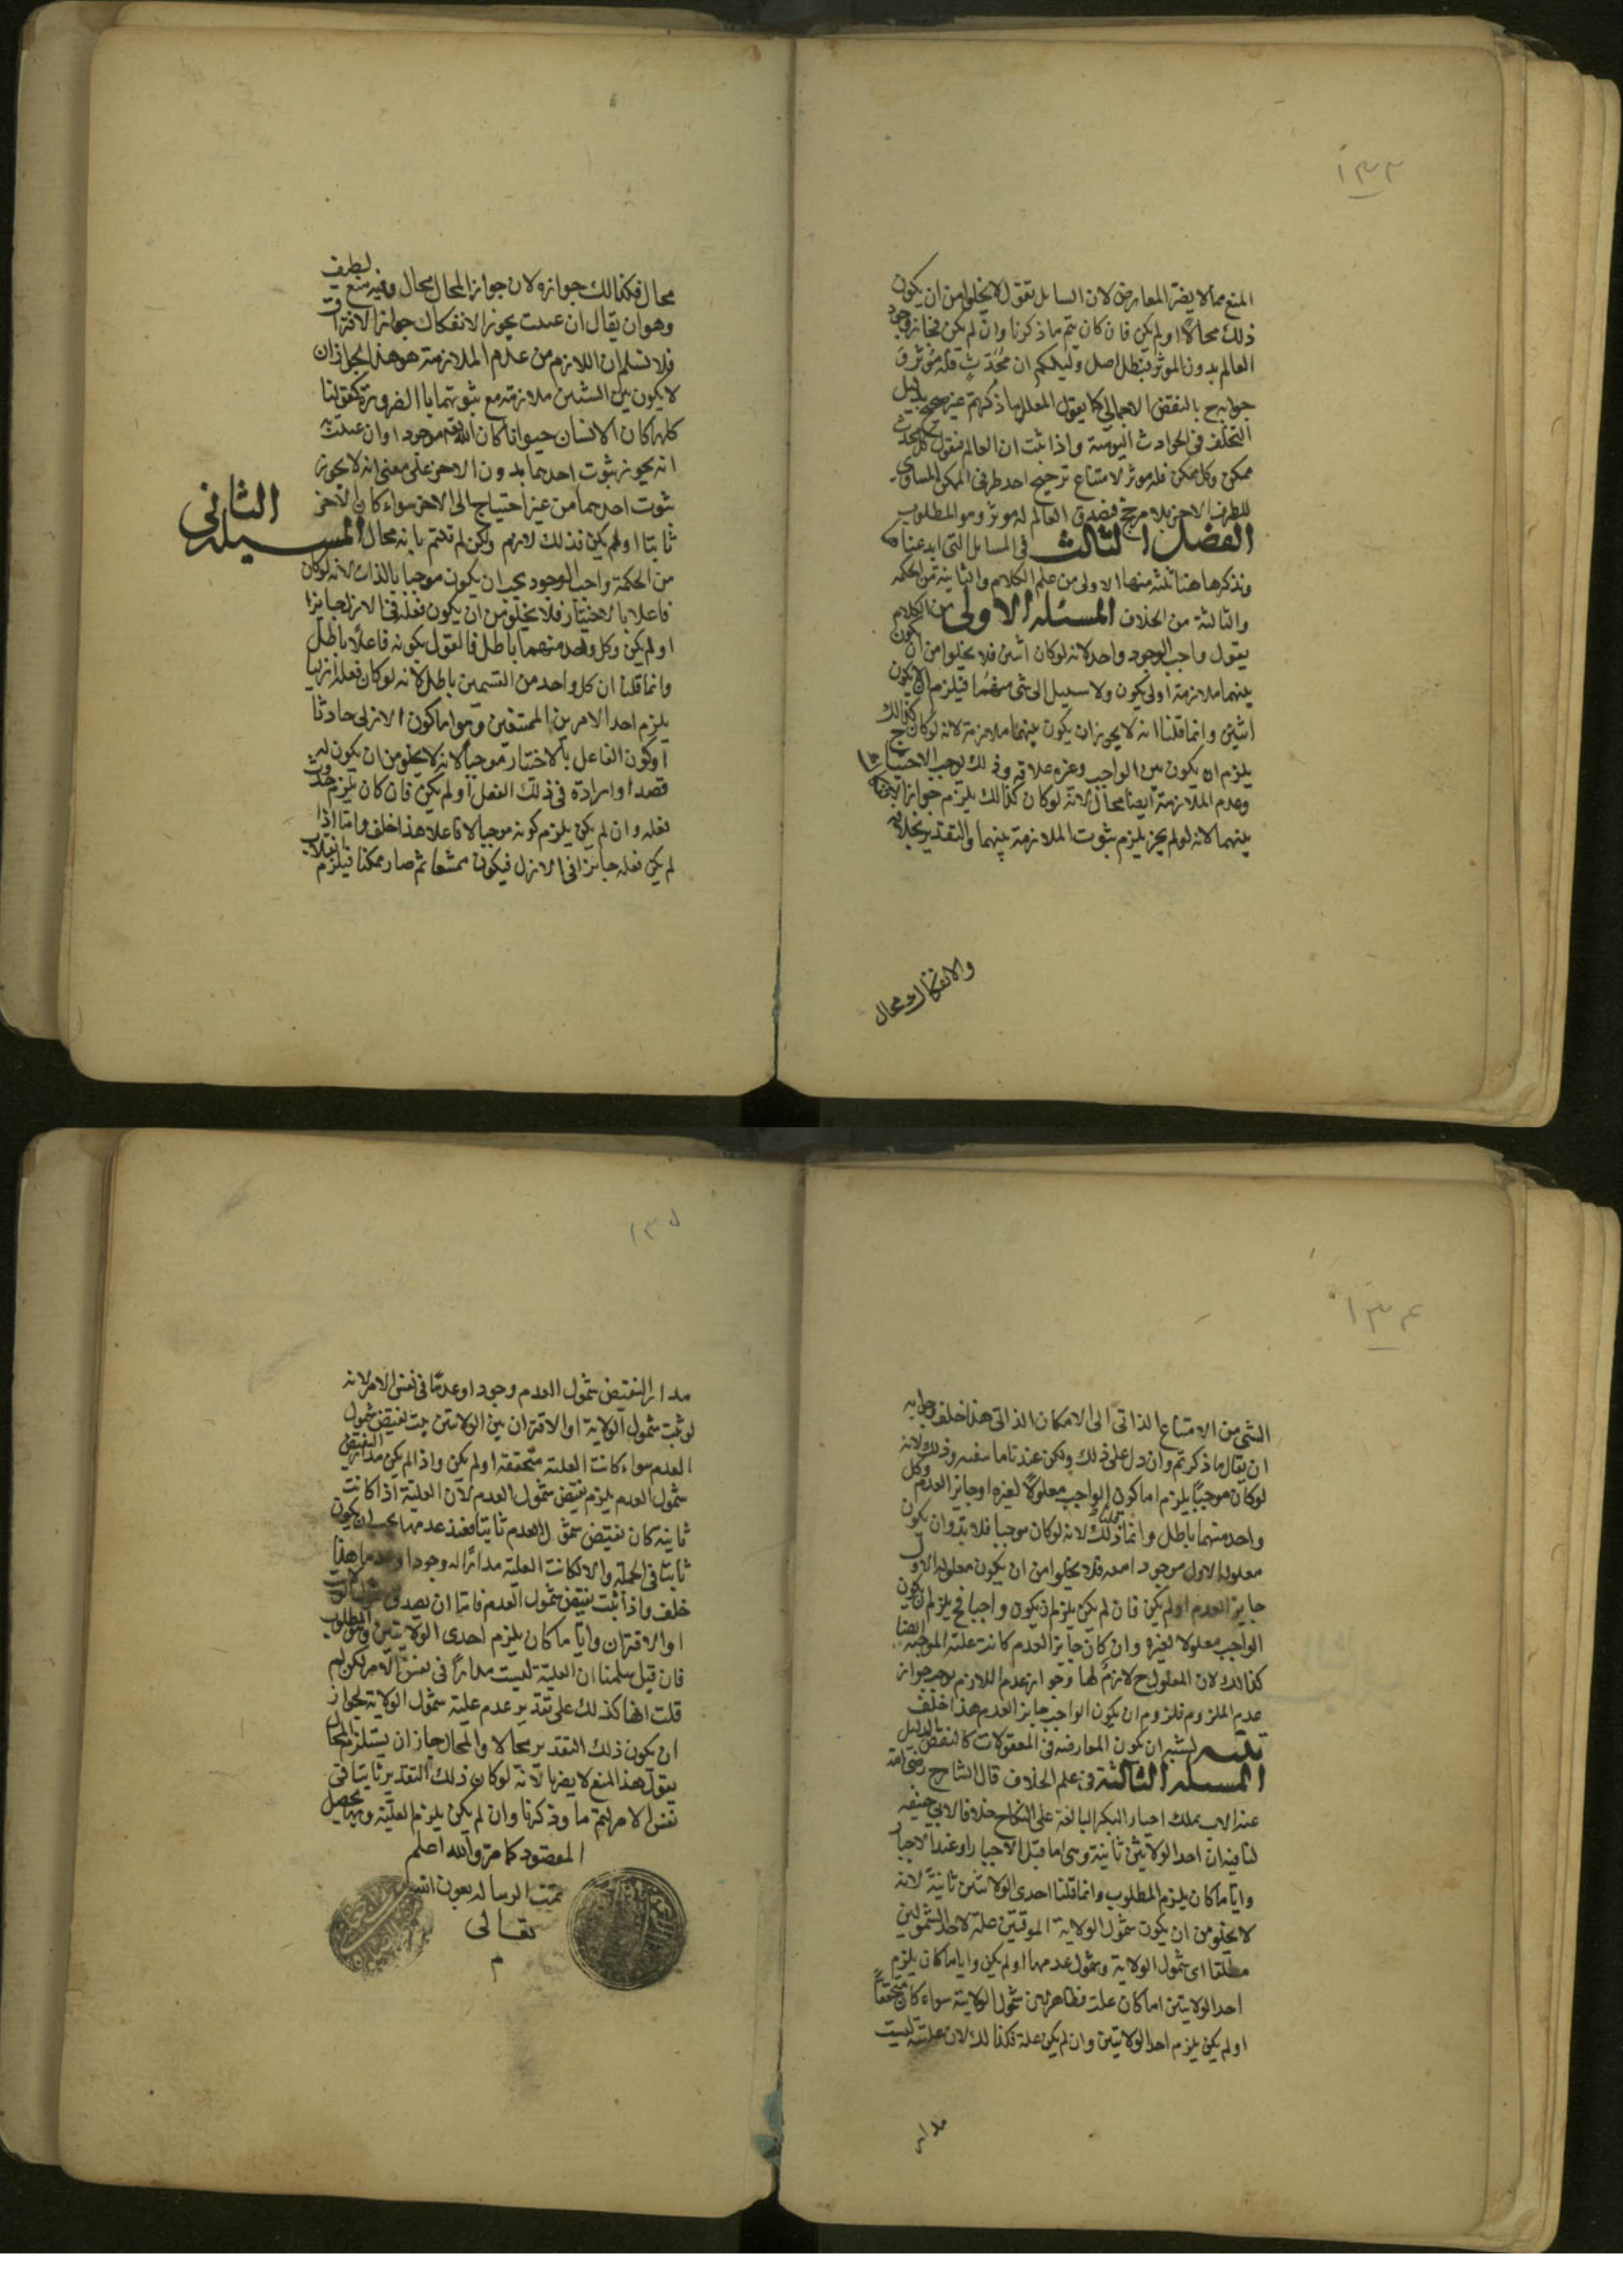 ١٣٣
المنع مما لا يضر المعارض لان السايل يقول لا يخلوا من ان يكون
ذلك محالا او لم يكن فان كان يتم ما ذكرنا وان لم يكن فجاز وجود
العالم بدون الموثر فبطل اصل دليلكم ان كل محدث فله موثر و
جوابه ح بالنقض الاجمالى كما يقول المعلل ما ذكرتم غير صحيح بدليل
التخلف فى الحوادث اليومية واذا ثبت ان العالم فنقول كل محدث
ممكن وكل ممكن فله موثر لامتناع ترجيح احد طرفى الممكن المساوى
للطرف الاخر بلا مرجح فصدق العالم له موثر وهو المطلوب
الفصل الثالث فى المسايل التى ابدعناه
ونذكرها هنا ثلثه منها الاولى من علم الكلام والثانية من الحكمه
والثالثة من الخلاف المسئله الاولى من الكلام
يقول واجب الوجود واحد لانه لو كان اثنين فلا يخلوا من ان يكون
بينهما ملازمة او لا يكون ولا سبيل الى شى منهما فيلزم ان لا يكون
اثنين وانما قلنا انه لا يجوز ان يكون بينهما ملازمة لانه لو كان كذالك
يلزم ان يكون بين الواجب وغيره علاقه وذلك يوجب الاحتياج
وعدم الملازمة ايضا محال لانه لو كان كذالك يلزم جواز الانفكاك
بينهما لانه لو لم يجز يلزم ثبوت الملازمة بينهما والتقدير بخلافه
والانفكاك محال
محال فكذالك جوازه لان جواز المحال محال وفيه منع لطيف
وهو ان يقال ان عنيت بجواز الانفكاك جواز الافتراق
فلا نسلم ان اللازم من عدم الملازمة هو هذا لجواز ان
لا يكون بين الشيئين ملازمة مع ثبوتهما بالضرورة كقولنا
كلما كان الانسان حيوانا كان الله تعالى موجودا وان عنيت
انه يجوز ثبوت احدهما بدون الاخر على معنى انه لا يجوز
ثبوت احدهما من غير احتياج الى الاخر سواء كان الاخر
ثابتا او لم يكن فذلك لازم ولكن لم قلتم بانه محال المسيله الثانى
من الحكمة واجب الوجود يجب ان يكون موجبا بالذات لانه لو كان
فاعلا بالاختيار فلا يخلو من ان يكون فعله فى الازل جايزا
او لم يكن وكل واحد منهما باطل فالقول بكونه فاعلا باطل
وانما قلنا ان كل واحد من القسمين باطل لانه لو كان فعله ازليا
يلزم احد الامرين الممتنعين وهو اما كون الازلى حادثا
او كون الفاعل بالاختيار موجبا لانه لا يخلو من ان يكون له
قصدا وارادة فى ذلك الفعل او لم يكن فان كان يلزم حدوث
فعله وان لم يكن يلزم كونه موجبا لا فاعلا هذا خلف واما اذا
لم يكن فعله جايزا فى الازل فيكون ممتنعا ثم صار ممكنا فيلزم انقلاب
١٣٤
الشى من الامتناع الذاتى الى الامكان الذاتى هذا خلف وجوابه
ان يقال ما ذكرتم وان دل على ذلك ولكن عندنا ما ينفيه وذلك لانه
لو كان موجبا يلزم اما كون الواجب معلولا لغيره او جايز العدم وكل
واحد منهما باطل وانما قلنا ذلك لانه لو كان موجبا فلا بد وان يكون
معلوله الاول موجودا معه فلا يخلوا من ان يكون معلوله الاول
جايز العدم او لم يكن فان لم يكن يلزم ان يكون واجبا فح يلزم ان يكون
الواجب معلولا لغيره وان كان جايز العدم كانت علته الموجبة ايضا
كذالك لان المعلول ح لازم لها وجواز عدم اللازم يوجب جواز
عدم الملزوم فلزوم ان يكون الواجب جايز العدم هذا خلف
تنبيه يشبه ان يكون المعارضه فى المعقولات كالنقض للدليل
المسله الثالثة فى علم الخلاف قال الشافعى رضى الله
عنه الاب يملك اجبار البكر البالغة على النكاح خلافا لابى حنيفه
لنا فيه ان احد الولايتين ثابتة وهى اما قبل الاجبار او عند الاجبار
وايا ما كان يلزم المطلوب وانما قلنا احدى الولايتين ثابتة لانه
لا يخلو من ان يكون شمول الولاية الموقتين علة لاحد الشمولين
مطلقا اى شمول الولاية وشمول عدمها او لم يكن وايا ما كان يلزم
احد الولايتين اما كان علة فظاهر لان شمول الولاية سواء كان متحققا
او لم يكن يلزم احد الولايتين وان لم يكن علة فكذالك لان علته ليست
مدار
١٣٥
مدار النقيض شمول العدم وجودا وعدما فى نفس الامر لانه
لو ثبت شمول الولاية او الاقتران بين الولايتين يثبت نقيض شمول
العدم سواء كانت العلية متحققة او لم يكن واذا لم يكن مدار النقيض
شمول العدم يلزم نقيض شمول العدم لان العلية اذا كانت
ثابتة كان نقيض شمول العدم ثابتا فعند عدمها يجب ان يكون
ثابتا فى الجملة والا لكانت العلية مدارا له وجودا وعدما هذا
خلف واذا ثبت نقيض شمول العدم فاما ان يصدق شمول الولاية
او الاقتران وايا ما كان يلزم احدى الولايتين وهو المطلوب
فان قيل سلمنا ان العلية ليست مدارا فى نفس الامر لكن لم
قلت انها كذلك على تقدير عدم علية شمول الولاية لجواز
ان يكون ذلك التقدير محالا والمحال جاز ان يستلزم المحال
نقول هذا المنع لا يضرنا لانه لو كان ذلك التقدير ثابتا فى
نفس الامر لتم ما ذكرنا وان لم يكن يلزم العلية وبها يحصل
المقصود كما مر والله اعلم
تمت الرساله بعون الله
تعالى
م